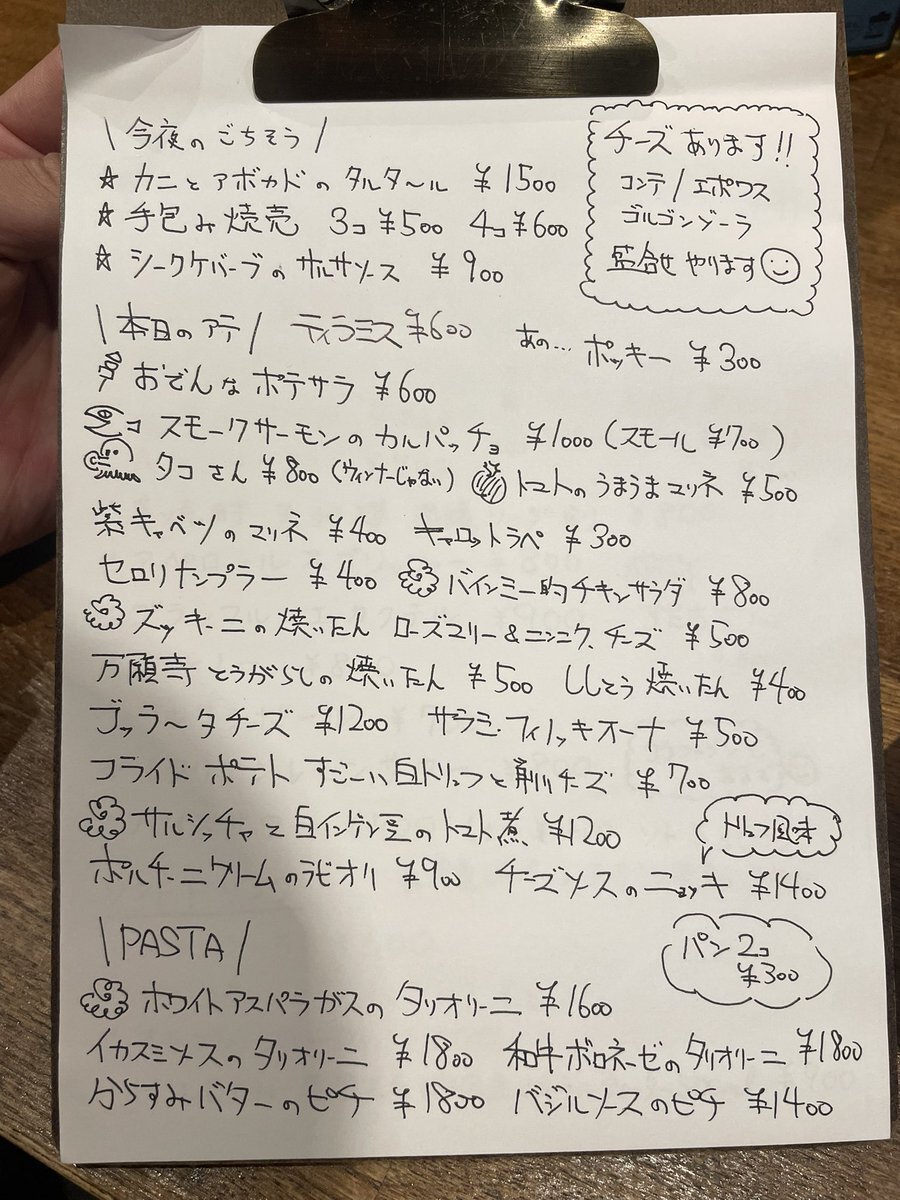 \ 今夜のごちそう /
☆ カニとアボカドのタルタ〜ル ¥1500
☆ 手包み焼売 3コ ¥500 4コ ¥600
☆ シークケバーブのサルサソース ¥900
チーズあります!!
コンテ / エポワス
ゴルゴンゾーラ
盛合せやります
\ 本日のアテ / ティラミス ¥600 あの… ポッキー ¥300
おでんなポテサラ ¥600
スモークサーモンのカルパッチョ ¥1000 (スモール ¥700)
タコさん ¥800 (ウィンナーじゃない) トマトのうまうまマリネ ¥500
紫キャベツのマリネ ¥400 キャロットラペ ¥300
セロリナンプラー ¥400 バインミー的チキンサラダ ¥800
ズッキーニの焼いたん ローズマリー&ニンニク、チーズ ¥500
万願寺とうがらしの焼いたん ¥500 ししとう焼いたん ¥400
ブッラ〜タチーズ ¥1200 サラミ・フィノッキオーナ ¥500
フライドポテト すご〜い白トリュフと削りチーズ ¥700
サルシッチャと白インゲン豆のトマト煮 ¥1200
トリュフ風味
ポルチーニクリームのラビオリ ¥900 チーズソースのニョッキ ¥1400
\ PASTA /
パン2コ
¥300
ホワイトアスパラガスのタリオリーニ ¥1600
イカスミソースのタリオリーニ ¥1800 和牛ボロネーゼのタリオリーニ ¥1800
からすみバターのピチ ¥1800 バジルソースのピチ ¥1400